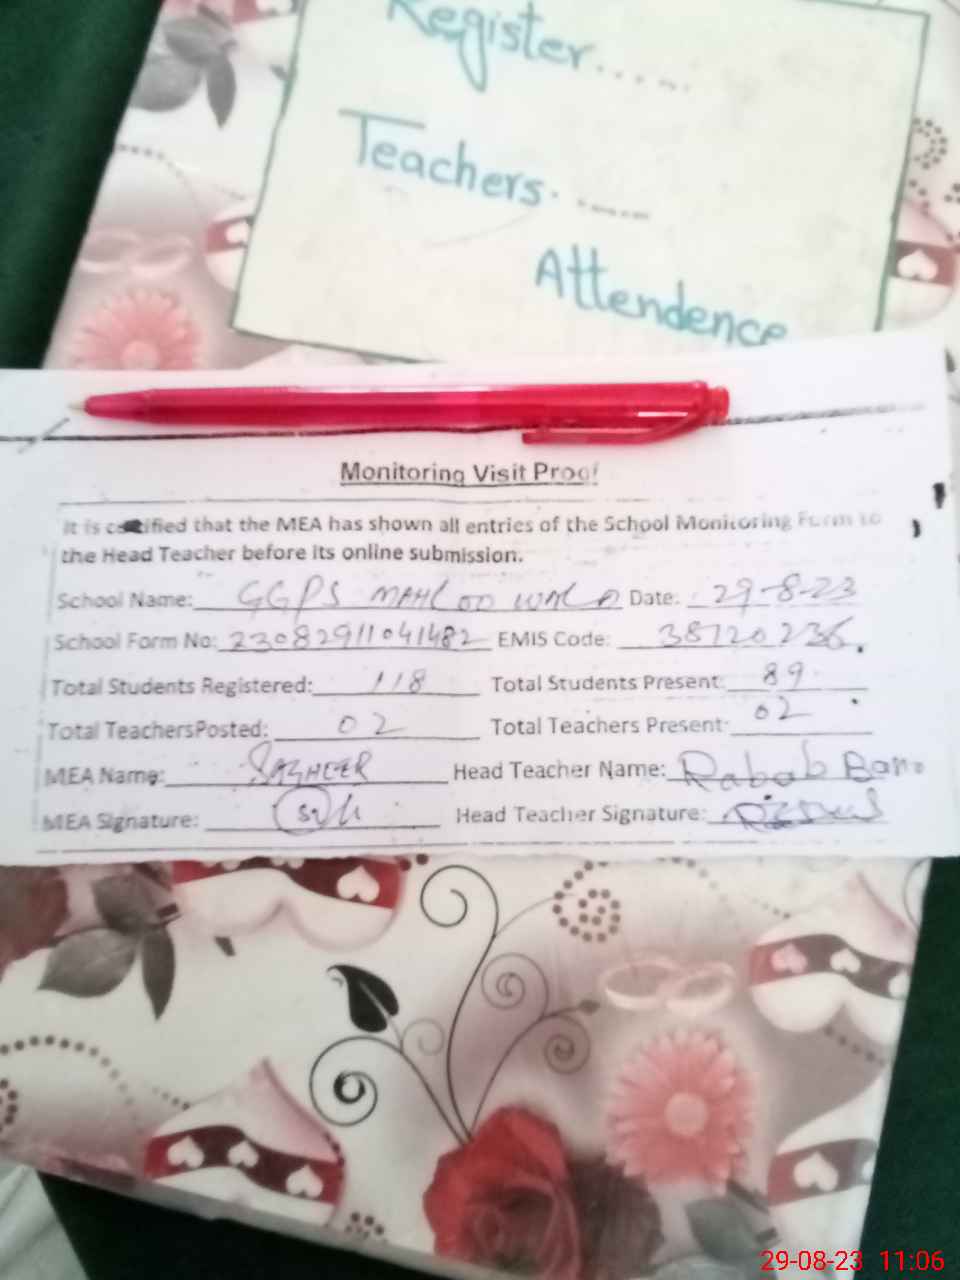 Register......
Teachers. .....
Attendence
Monitoring Visit Proof
It is certified that the MEA has shown all entries of the School Monitoring Form to
the Head Teacher before its online submission.
School Name: GGPS MAHLOO WALA Date: 29-8-23
School Form No: 23082911041482 EMIS Code: 38720236
Total Students Registered: 118 Total Students Present: 89
Total TeachersPosted: 02 Total Teachers Present: 02
MEA Name: SAGHEER Head Teacher Name: Rabab Bano
MEA Signature: Head Teacher Signature:
29-08-23 11:06